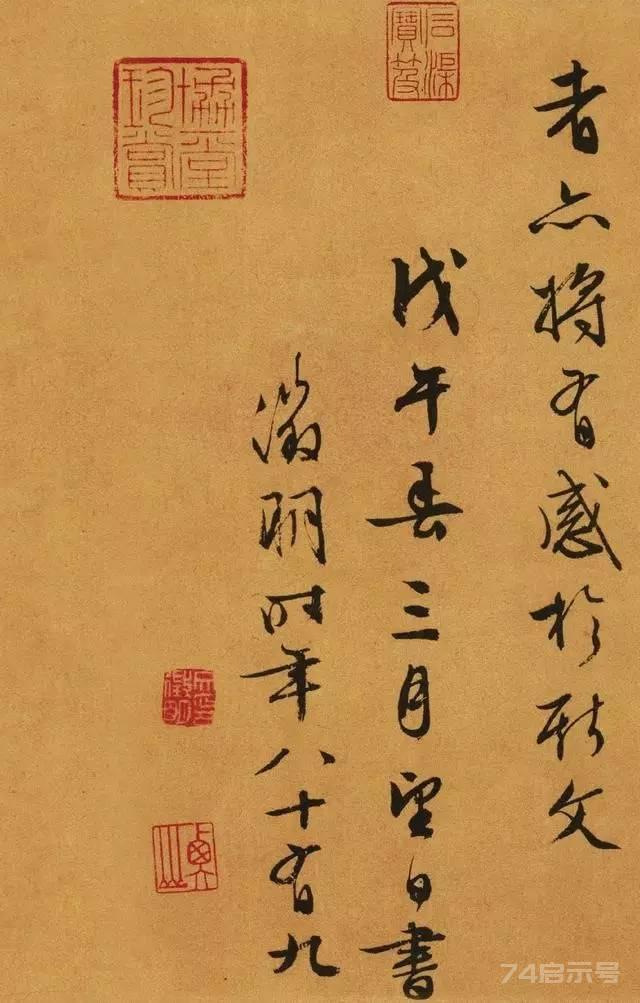 者亦將有感於斯文
戊午春三月望日書
徵明時年八十有九
協堂珍賞
74启示号